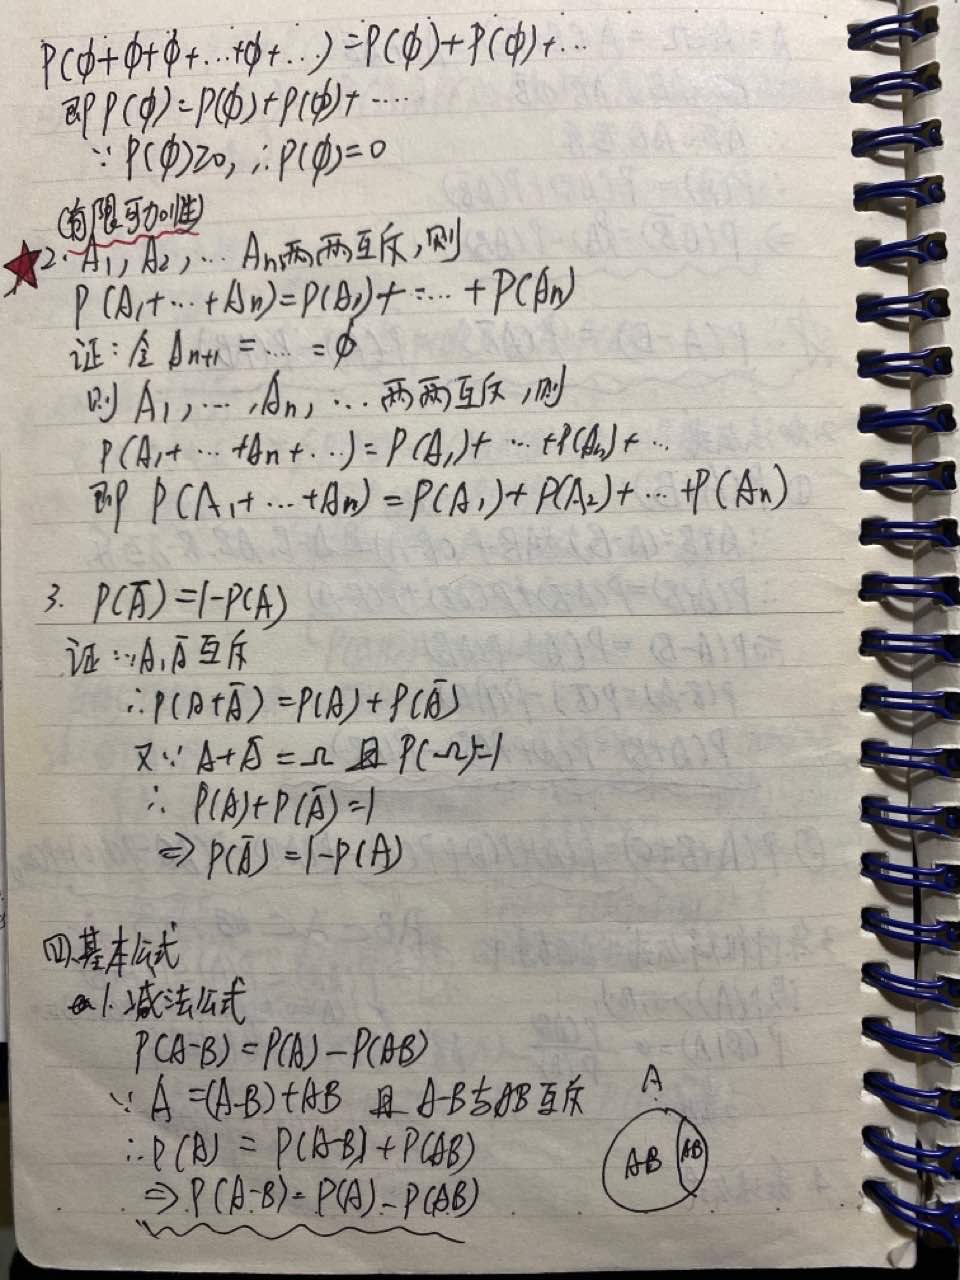 P(φ+φ+φ+...+φ+...)=P(φ)+P(φ)+...
即P(φ)=P(φ)+P(φ)+....
∵P(φ)≥0,∴P(φ)=0
(有限可加性)
2. A₁,A₂,... Aₙ,两两互斥,则
P(A₁+...+Aₙ)=P(A₁)+...+P(Aₙ)
证:令Aₙ₊₁=....=φ
则A₁,...,Aₙ,...两两互斥,则
P(A₁+...+Aₙ+...)=P(A₁)+...+P(Aₙ)+...
即P(A₁+...+Aₙ)=P(A₁)+P(A₂)+...+P(Aₙ)
3. P(Ā)=1-P(A)
证∵A,Ā互斥
∴P(A+Ā)=P(A)+P(Ā)
又∵A+Ā=Ω且P(Ω)=1
∴P(A)+P(Ā)=1
⇒P(Ā)=1-P(A)
四.基本公式
1.减法公式
P(A-B)=P(A)-P(AB)
∵A=(A-B)+AB 且A-B与AB互斥
∴P(A)=P(A-B)+P(AB)
⇒P(A-B)=P(A)-P(AB)
A
AB AB